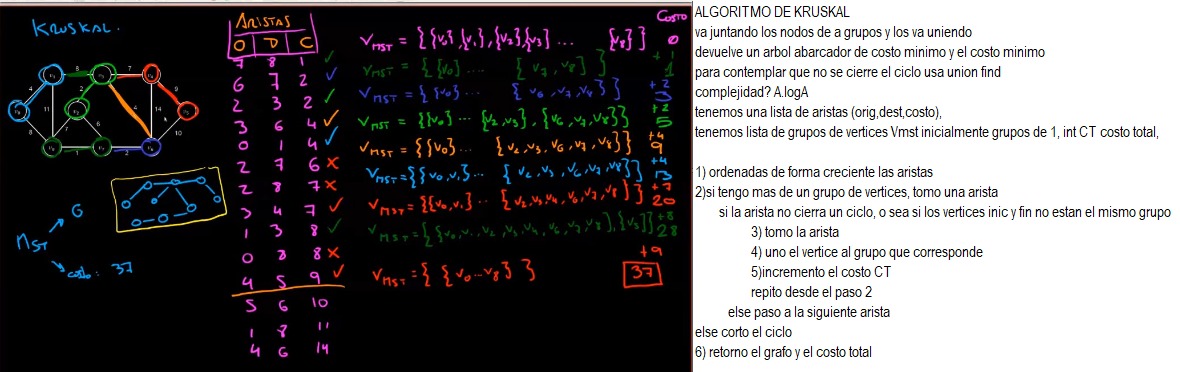 KRUSKAL.
8
7
4
11
2
4
14
9
8
7
6
10
1
2
G
MST
costo: 37
ARISTAS
O D C
7 8 1 ✓
6 7 2 ✓
2 3 2 ✓
3 6 4 ✓
0 1 4 ✓
2 7 6 ✗
2 8 7 ✗
3 4 7 ✓
1 3 8 ✓
0 2 8 ✗
4 5 9 ✓
5 6 10
1 8 11
4 6 14
COSTO
VMST = { {v0} {v1}, {v2} {v3} ... {v8} } 0
VMST = { {v0} ... { v7, v8 } } +1 1
VMST = { {v0} ... { v6, v7, v8 } } +2 3
VMST = { {v0} ... {v2, v3}, {v6, v7, v8} } +2 5
VMST = { {v0} ... { v2, v3, v6, v7, v8 } } +4 9
VMST = { {v0, v1} ... { v2, v3, v6, v7, v8 } } +4 13
VMST = { {v0, v1} ... { v2, v3, v4, v6, v7, v8 } } +7 20
VMST = { {v0, v1, v2, v3, v4, v6, v7, v8 }, {v5} } +8 28
+9
VMST = { { v0 ... v8 } } 37
ALGORITMO DE KRUSKAL
va juntando los nodos de a grupos y los va uniendo
devuelve un arbol abarcador de costo minimo y el costo minimo
para contemplar que no se cierre el ciclo usa union find
complejidad? A.logA
tenemos una lista de aristas (orig,dest,costo),
tenemos lista de grupos de vertices Vmst inicialmente grupos de 1, int CT costo total,
1) ordenadas de forma creciente las aristas
2)si tengo mas de un grupo de vertices, tomo una arista
si la arista no cierra un ciclo, o sea si los vertices inic y fin no estan el mismo grupo
3) tomo la arista
4) uno el vertice al grupo que corresponde
5)incremento el costo CT
repito desde el paso 2
else paso a la siguiente arista
else corto el ciclo
6) retorno el grafo y el costo total